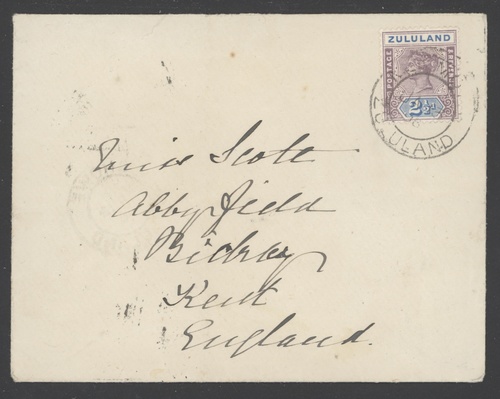 ZULULAND
POSTAGE
2½d
ZULULAND
Miss Scott
Abbyfield
Kent
England.